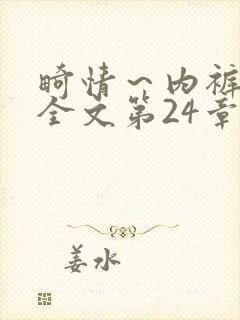 畸情一内裤
全文第24章
姜水